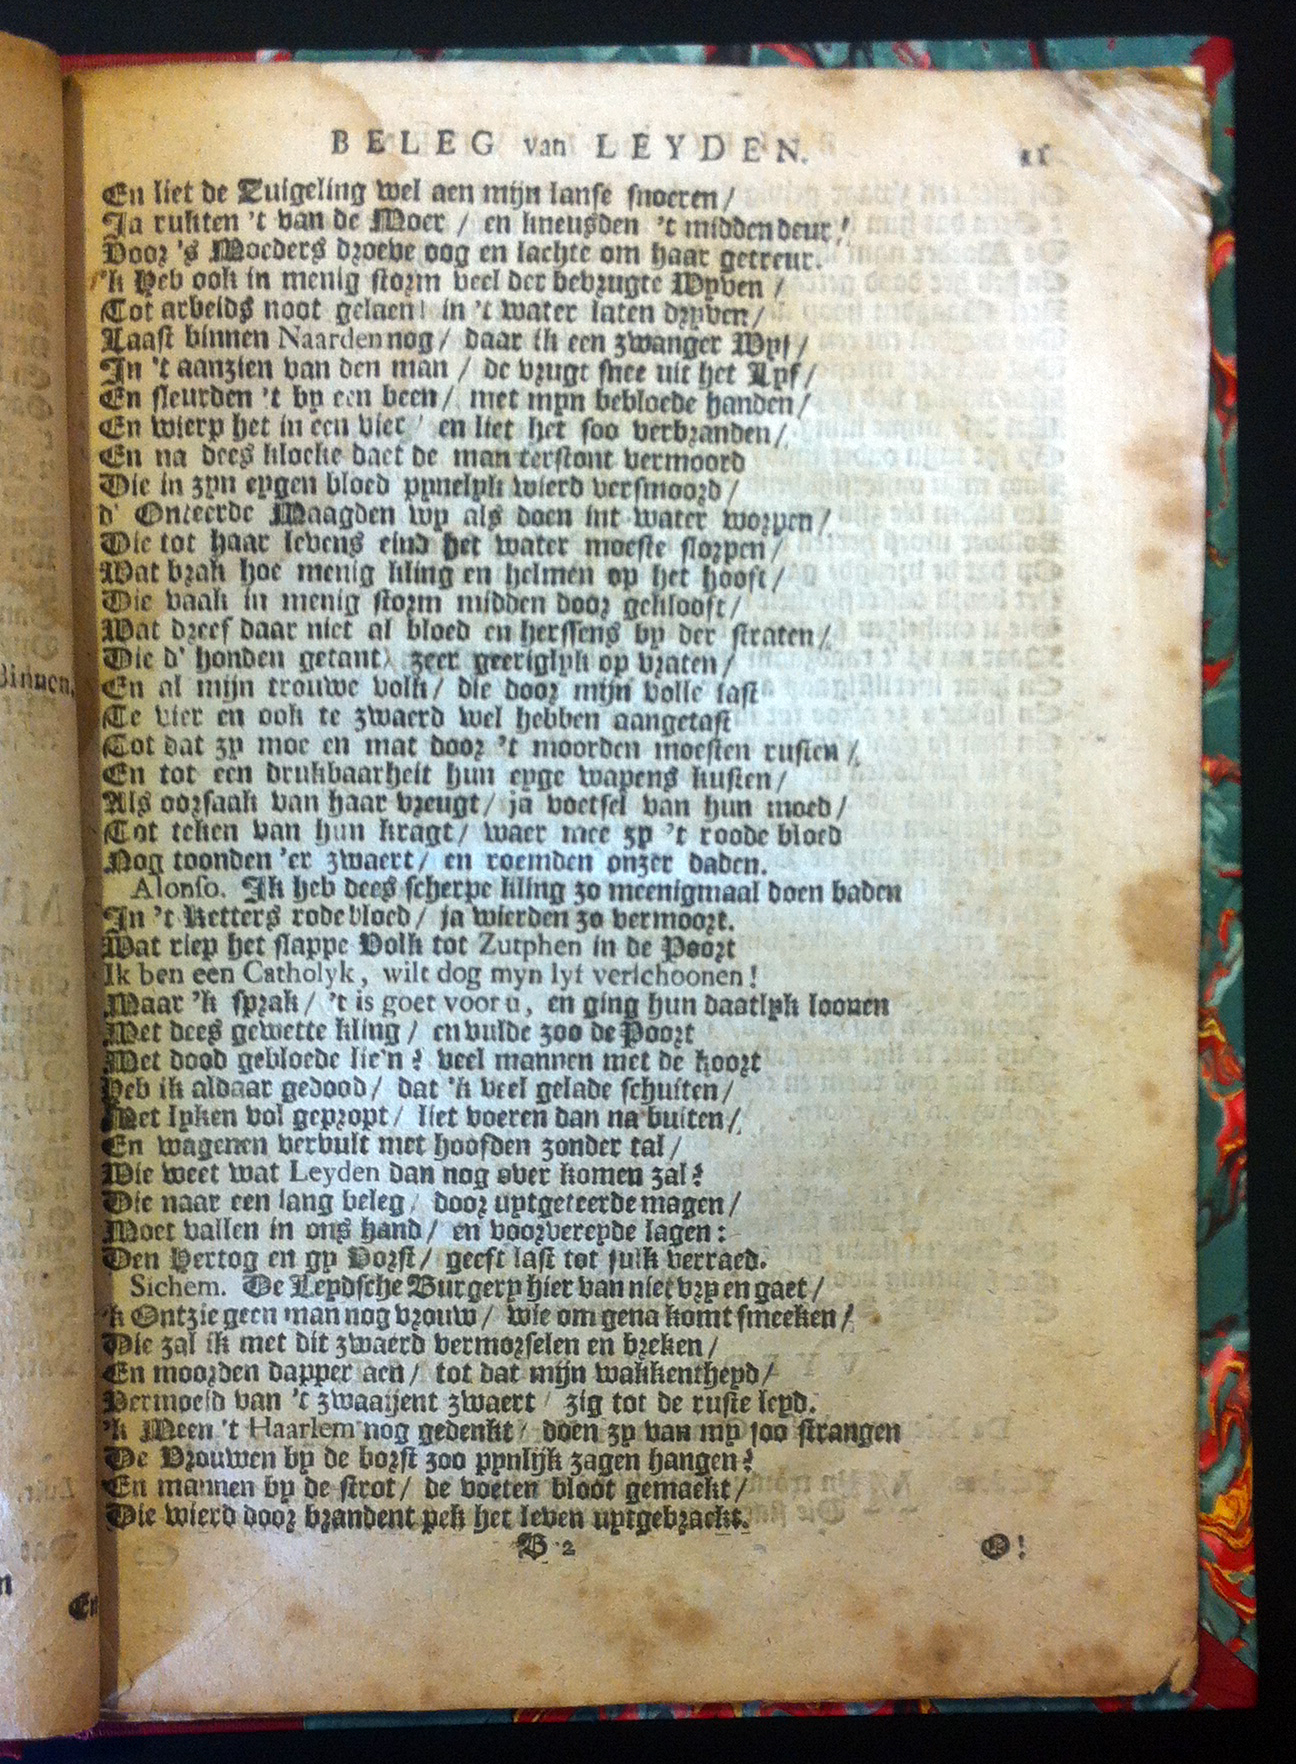 BELEG van LEYDEN. 11
En liet de Zuigeling wel aen mijn lanse snoeren /
Ja rukten 't van de Moer / en kneusden 't midden deur!
Voor 's Moeders droeve oog en lachte om haar getreur.
'k Heb ook in menig storm veel der bevrugte Wyven /
Tot arbeids noot gelaen! in 't water laten dryven /
Laast binnen Naarden nog / daar ik een zwanger Wyf /
In 't aanzien van den man / de vrugt snee uit het Lyf /
En sleurden 't by een been / met myn bebloede handen /
En wierp het in een vier / en liet het soo verbranden /
En na dees klocke daet de man terstont vermoord
Die in zyn eygen bloed pynelyk wierd versmoord /
d' Onteerde Maagden wy als doen int water worpen /
Die tot haar levens eind het water moeste slorpen /
Wat brak hoe menig kling en helmen op het hooft /
Die vaak in menig storm midden door geklooft /
Wat dreef daar niet al bloed en herssens by der straten /
Die d' honden getant) zeer geeriglyk op vraten /
En al mijn trouwe volk / die door mijn volle last
Te vier en ook te zwaerd wel hebben aangetast
Tot dat zy moe en mat door 't moorden moesten rusten /
En tot een drukbaarheit hun eyge wapens kusten /
Als oorsaak van haar vreugt / ja voetsel van hun moed /
Tot teken van hun kragt / waer mee zy 't roode bloed
Nog toonden 'er zwaert / en roemden onzer daden.
Alonso. Ik heb dees scherpe kling zo meenigmaal doen baden
In 't Ketters rode bloed / ja wierden zo vermoort.
Wat riep het slappe Volk tot Zutphen in de Poort
Ik ben een Catholyk, wilt dog myn lyf verschoonen!
Maar 'k sprak / 't is goet voor u, en ging hun daatlyk loonen
Met dees gewette kling / en vulde zoo de Poort
Met dood gebloede lie'n? veel mannen met de koort
Heb ik aldaar gedood / dat 'k veel gelade schuiten /
Met lyken vol gepropt / liet voeren dan na buiten /
En wagenen vervult met hoofden zonder tal /
Wie weet wat Leyden dan nog over komen zal?
Die naar een lang beleg / door uytgeteerde magen /
Moet vallen in ons hand / en voorbereyde lagen:
Den Hertog en gy Vorst / geeft last tot sulk verraed.
Sichem. De Leydsche Burgery hier van niet vry en gaet /
'k Ontzie geen man nog vrouw / wie om gena komt smeeken /
Die zal ik met dit zwaerd vermorselen en breken /
En moorden dapper aen / tot dat mijn wakkentheyd /
Vermoeid van 't zwaaijent zwaert / zig tot de ruste leyd.
'k Meen 't Haarlem nog gedenkt / doen zy van my soo strangen
De Vrouwen by de borst zoo pynlijk zagen hangen?
En mannen by de strot / de voeten bloot gemaekt /
Die wierd door brandent pek het leven uytgebrackt.
B 2 O!
Binnen,
En